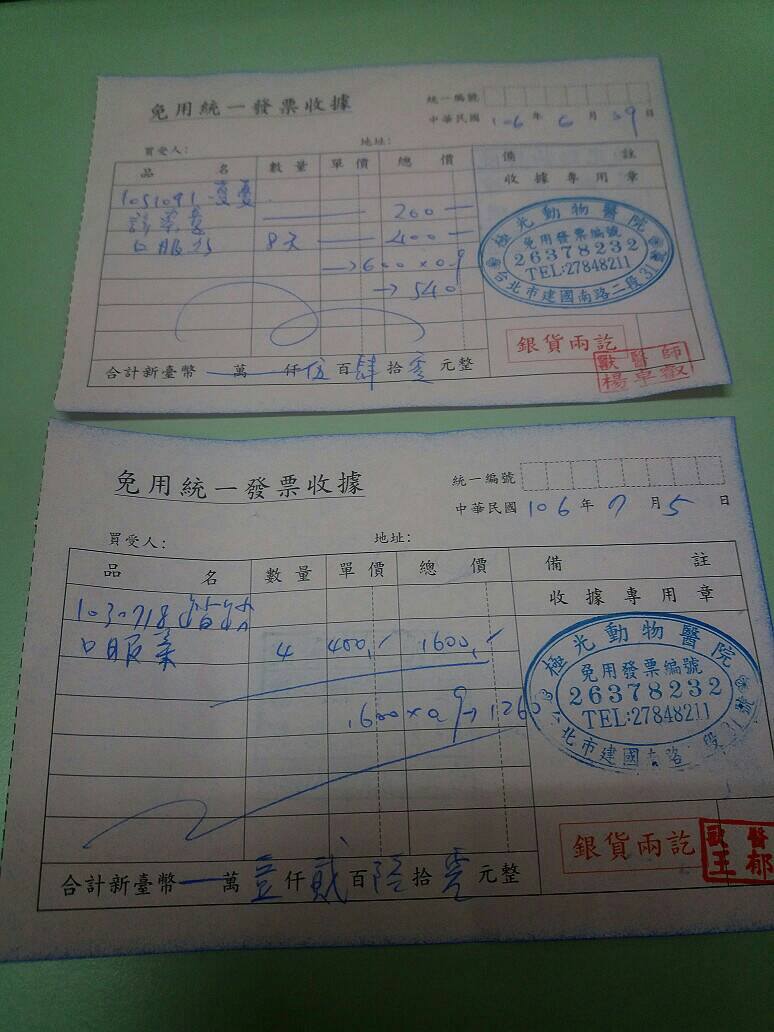 免用統一發票收據
統一編號
中華民國 106 年 6 月 29 日
買受人: 地址:
品 名 數量 單價 總價 備註
收據專用章
1051091
診察費 200
口服 8天 400
→600×0.9
→540
極光動物醫院
免用發票編號
26378232
TEL:27848211
台北市建國南路二段31號
銀貨兩訖
獸醫師
合計新臺幣 萬 仟 伍 百 肆 拾 零 元整
免用統一發票收據
統一編號
中華民國 106 年 7 月 5 日
買受人: 地址:
品 名 數量 單價 總價 備註
收據專用章
1030718
口服藥 4 400 1600
1600×0.9→1260
極光動物醫院
免用發票編號
26378232
TEL:27848211
北市建國南路 段31號
銀貨兩訖
獸醫
王郁
合計新臺幣 萬 壹 仟 貳 百 陸 拾 零 元整